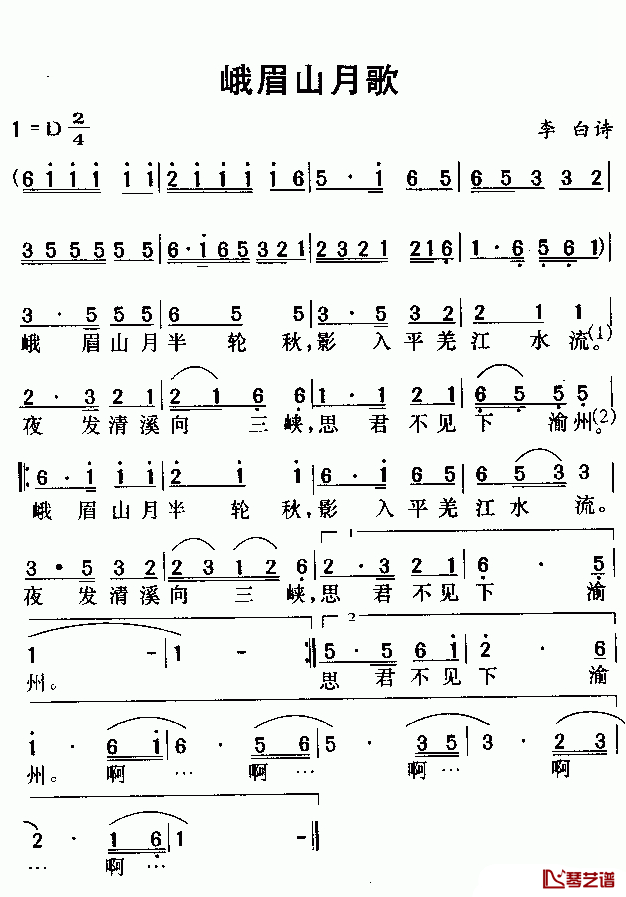 峨眉山月歌
1 = D 2/4
李 白诗
(6 1 1 1 1 1 | 2 1 1 1 1 6 | 5 · 1 6 5 | 6 5 3 3 2 |
3 5 5 5 5 5 | 6 · 1 6 5 3 2 1 | 2 3 2 1 2 1 6 | 1 · 6 5 6 1)
3 · 5 5 5 | 6 5 5 | 3 · 5 3 2 | 2 1 1 |
峨 眉山月半 轮 秋,影 入平羌江 水 流。(1)
2 · 3 2 1 | 2 1 6 6 | 1 · 1 2 1 | 6 5 5 5 |
夜 发清溪向 三峡,思君 不见下 渝州。(2)
6 · 1 1 1 | 2 1 1 | 6 · 1 6 5 | 6 5 3 3 |
峨 眉山月半 轮 秋,影 入平羌江水 流。
1
3 · 5 3 2 | 2 3 1 2 6 | 2 · 3 2 1 | 6 · 5 |
夜 发清溪向 三峡,思君 不见下 渝
2
1 - | 1 - :| 5 · 5 6 1 | 2 · 6 |
州。 思君 不见下 渝
1 · 6 1 | 6 · 5 6 | 5 · 3 5 | 3 · 2 3 |
州。 啊 … 啊 … 啊 … 啊
2 · 1 6 | 1 - |
… 啊 …
琴艺谱